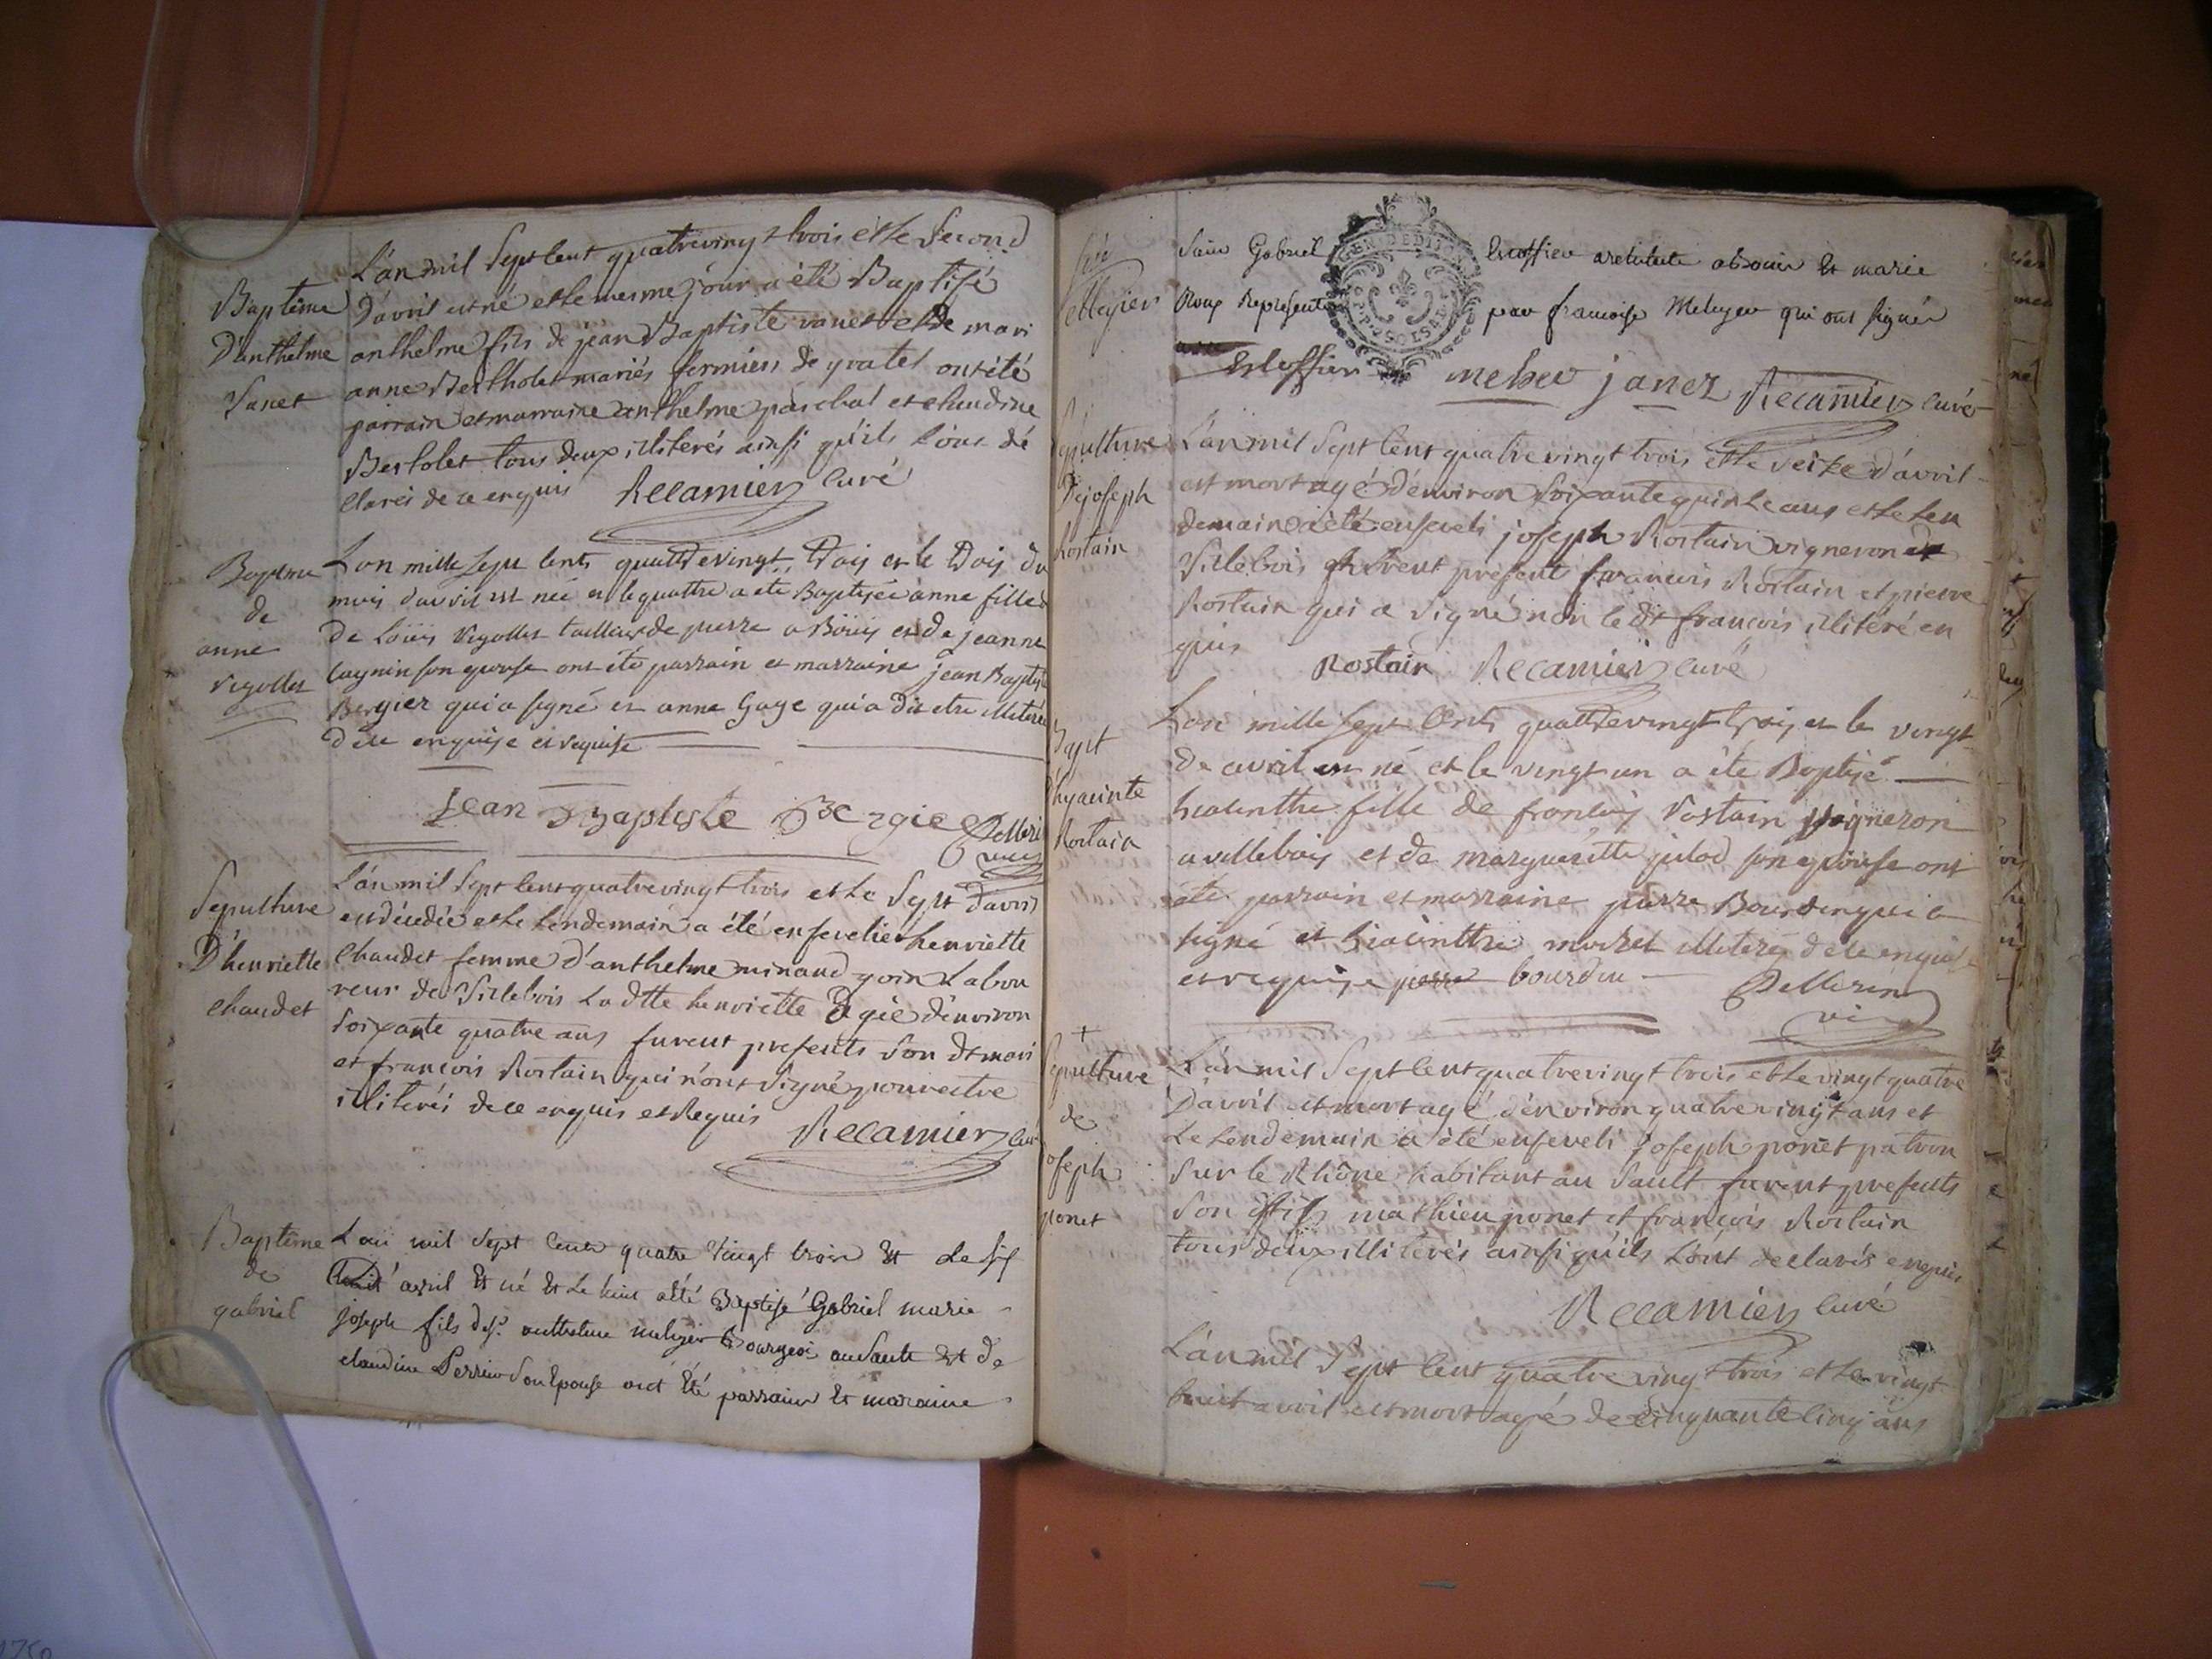 L'an mil Sept Cent quatrevingt trois et le Second
Baptême
D'anthelme
Vanet
D'avril est né et le mesme jour a été Baptisé
anthelme fils de jean Baptiste vanet et de mari
anne Bertholet mariés fermiers de ont été
parrain et marraine anthelme paschal et claudine
Bertolet tous deux illiterés ainsi qu'ils l'ont dé
clarés de ce enquis Recamier Curé
Baptme
de
anne
vegollet
L'an mille sept cents quattrevingt trois et le trois du
mois d'avril est née et le quattre a ete Baptisée anne fille
de Loüis vegollet tailleur de pierre a Böüis et de jeanne
son epouse ont été parrain et marraine jean Baptiste
Bergier qui a signé et anne Gage qui a dit etre illiterée
de ce enquise et requise
jean Baptiste Bergier Pellerin
vic
Sepulture
D'henriette
Chaudet
L'an mil Sept Cent quatrevingt trois et le Sept d'avril
est décedée et le lendemain a été ensevelie henriette
Chaudet femme d'anthelme minaud goin Labou
reur de Villebois La dtte henriette agée d'environ
Soixante quatre ans furent presents Son dt mari
et francois Rostain qui n'ont Signé pour estre
illiterés de ce enquis et Requis
Recamier Curé
Baptême
de
gabriel
L'an mil Sept Cent quatre vingt trois Et Le Six
avril Et né Et Le huit a été Baptisé Gabriel marie
joseph fils de Sr. anthelme melugier Bourgeois au Sault Et de
claudine Perrier Son Epouse ont Eté parrain Et maraine
melugier
Sieur Gabriel Escoffier architecte absent Et marie
Roux Representés par francoise Melugier qui ont signés
Escoffier janez Recamier Curé
GEN. DE DIJON
Sepulture
De joseph
Rostain
L'an mil Sept Cent quatrevingt trois et le seize d'avril
est mort agé d'environ Soixante quinze ans et le len
demain a été enseveli joseph Rostain vigneron de
Villebois furent présents francois Rostain et pierre
Rostain qui a Signé non le dt francois illiteré en
quis
Rostain Recamier Curé
Bapt
d'hyacinte
Rostain
L'an mille sept Cents quattrevingt trois et le vingt
De avril est né et le vingt un a été Baptisé
hiacinthe fille de francois Rostain vigneron
a villebois et de margueritte jelod son epouse ont
été parrain et marraine pierre Bourdin qui a
signé et hiacinthe moiret illiterés de ce enquise
et requise pierre bourdin Pellerin
vic
+
Sepulture
de
joseph
ponet
L'an mil Sept Cent quatrevingt trois et le vingt quatre
D'avril est mort agé d'environ quatrevingt ans et
Le Lendemain a été enseveli joseph ponet patron
Sur le Rhône habitant au Sault furent presents
Son fils mathieu ponet et françois Rostain
tous deux illiterés ainsi qu'ils L'ont declarés enquis
Recamier Curé
L'an mil Sept Cent quatre vingt trois et le vingt
huit avril est mort agé de cinquante Cinq ans